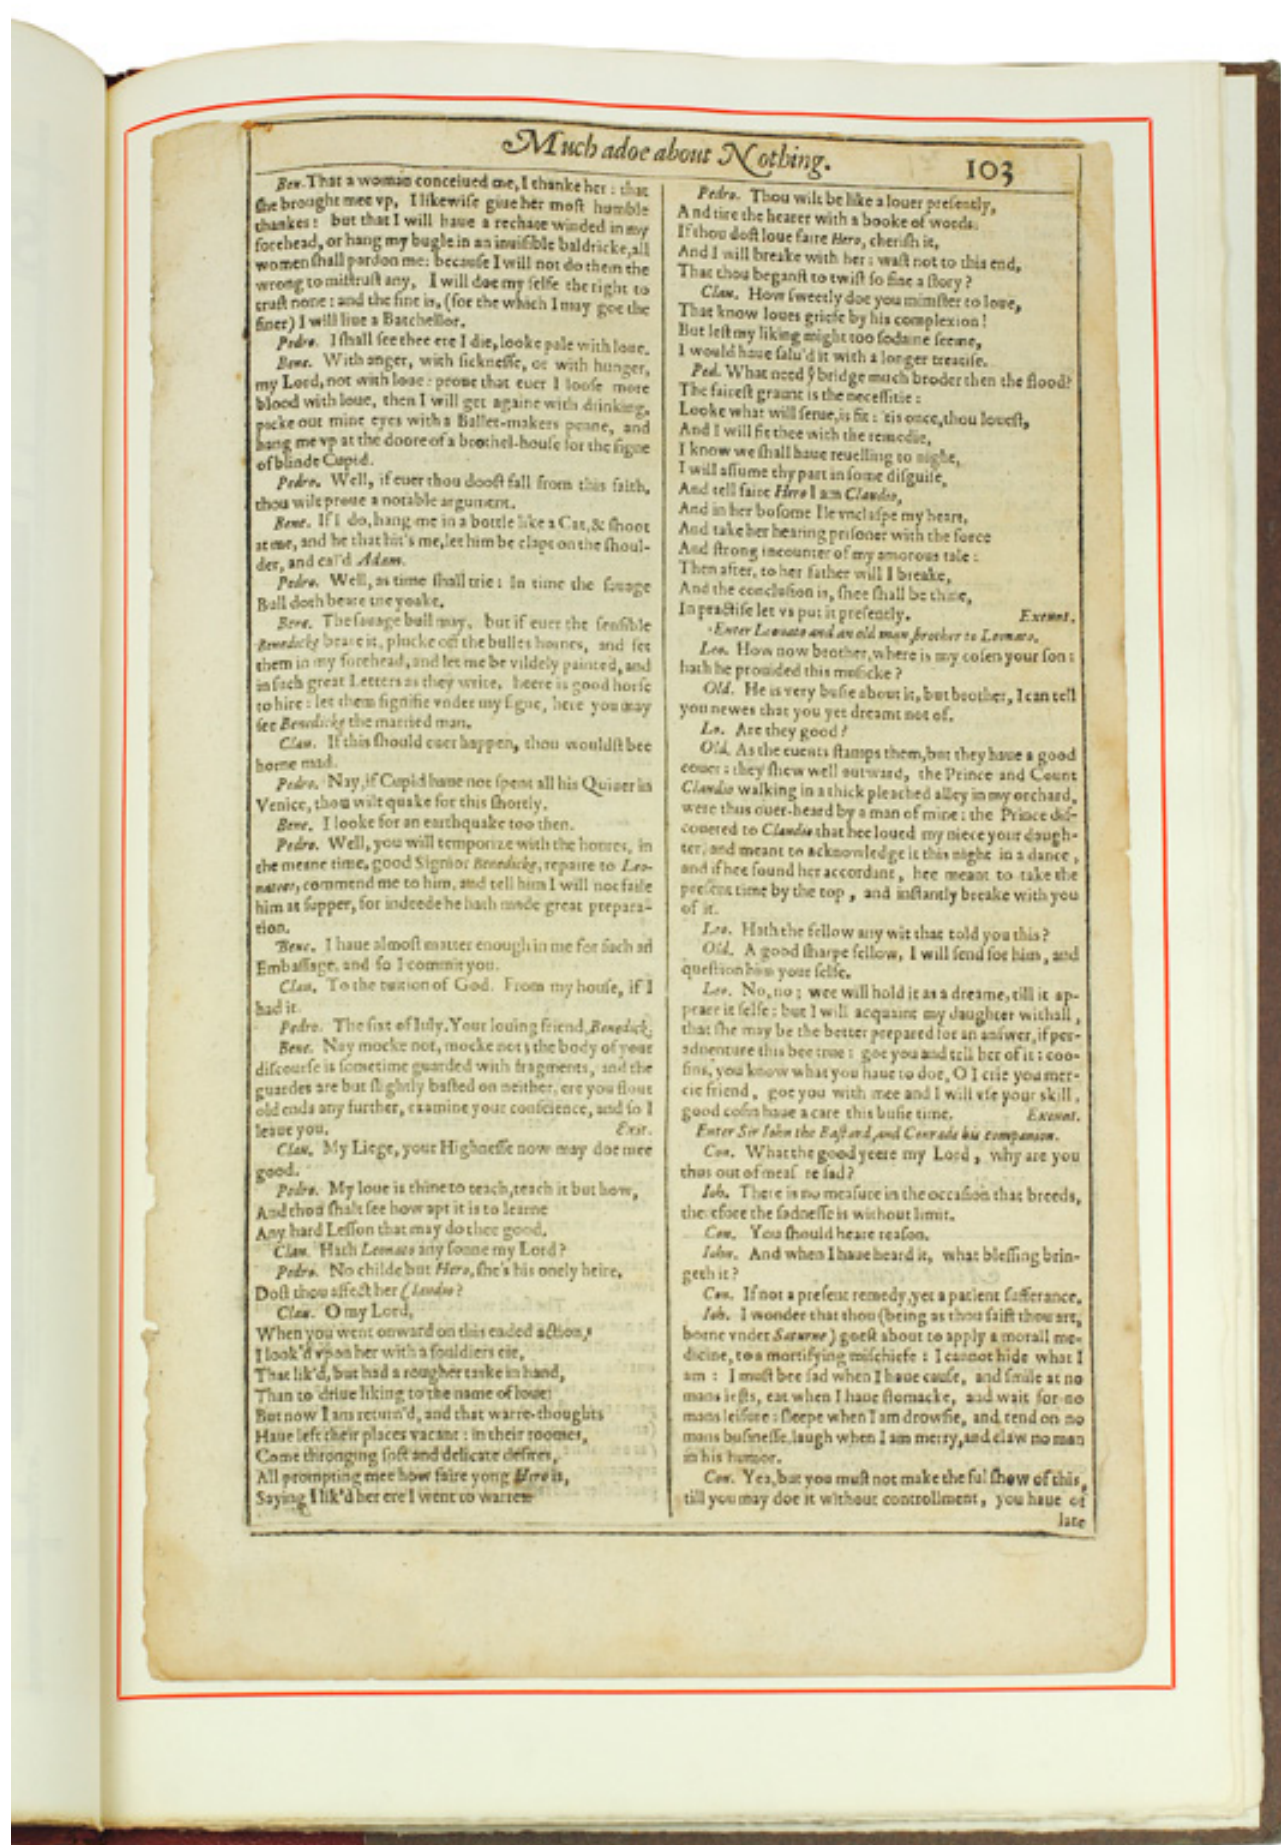 Much adoe about Nothing.
103
Ben. That a woman conceiued me, I thanke her: that
she brought mee vp, I likewise giue her most humble
thankes: but that I will haue a rechate winded in my
forehead, or hang my bugle in an inuisible baldricke, all
women shall pardon me: because I will not do them the
wrong to mistrust any, I will doe my selfe the right to
trust none: and the fine is, (for the which I may goe the
finer) I will liue a Batchellor.
Pedro. I shall see thee ere I die, looke pale with loue.
Bene. With anger, with sicknesse, or with hunger,
my Lord, not with loue: proue that euer I loose more
blood with loue, then I will get againe with drinking,
picke out mine eyes with a Ballet-makers penne, and
hang me vp at the doore of a brothel-house for the signe
of blinde Cupid.
Pedro. Well, if euer thou doost fall from this faith,
thou wilt proue a notable argument.
Bene. If I do, hang me in a bottle like a Cat, & shoot
at me, and he that hit's me, let him be clapt on the shoul-
der, and cal'd Adam.
Pedro. Well, as time shall trie: In time the sauage
Bull doth beare the yoake.
Bene. The sauage bull may, but if euer the sensible
Benedicke beare it, plucke off the bulles hornes, and set
them in my forehead, and let me be vildely painted, and
in such great Letters as they write, heere is good horse
to hire: let them signifie vnder my signe, here you may
see Benedicke the married man.
Clau. If this should euer happen, thou wouldst bee
horne mad.
Pedro. Nay, if Cupid haue not spent all his Quiuer in
Venice, thou wilt quake for this shortly.
Bene. I looke for an earthquake too then.
Pedro. Well, you will temporize with the houres, in
the meane time, good Signior Benedicke, repaire to Leo-
natoes, commend me to him, and tell him I will not faile
him at supper, for indeede he hath made great prepara-
tion.
Bene. I haue almost matter enough in me for such an
Embassage, and so I commit you.
Clau. To the tuition of God. From my house, if I
had it.
Pedro. The sixt of Iuly. Your louing friend, Benedick.
Bene. Nay mocke not, mocke not; the body of your
discourse is sometime guarded with fragments, and the
guardes are but slightly basted on neither, ere you flout
old ends any further, examine your conscience, and so I
leaue you. Exit.
Clau. My Liege, your Highnesse now may doe mee
good.
Pedro. My loue is thine to teach, teach it but how,
And thou shalt see how apt it is to learne
Any hard Lesson that may do thee good.
Clau. Hath Leonato any sonne my Lord?
Pedro. No childe but Hero, she's his onely heire,
Dost thou affect her Claudio?
Clau. O my Lord,
When you went onward on this ended action,
I look'd vpon her with a souldiers eie,
That lik'd, but had a rougher taske in hand,
Than to driue liking to the name of loue:
But now I am return'd, and that warre-thoughts
Haue left their places vacant: in their roomes,
Come thronging soft and delicate desires,
All prompting mee how faire yong Hero is,
Saying I lik'd her ere I went to warres.
Pedro. Thou wilt be like a louer presently,
And tire the hearer with a booke of words:
If thou dost loue faire Hero, cherish it,
And I will breake with her: wast not to this end,
That thou beganst to twist so fine a story?
Clau. How sweetly doe you minister to loue,
That know loues griefe by his complexion!
But lest my liking might too sodaine seeme,
I would haue salu'd it with a longer treatise.
Ped. What need yͤ bridge much broder then the flood?
The fairest graunt is the necessitie:
Looke what will serue, is fit: 'tis once, thou louest,
And I will fit thee with the remedie,
I know we shall haue reuelling to night,
I will assume thy part in some disguise,
And tell faire Hero I am Claudio,
And in her bosome Ile vnclaspe my heart,
And take her hearing prisoner with the force
And strong incounter of my amorous tale:
Then after, to her father will I breake,
And the conclusion is, shee shall be thine,
In practise let vs put it presently. Exeunt.
Enter Leonato and an old man, brother to Leonato.
Leo. How now brother, where is my cosen your son:
hath he prouided this musicke?
Old. He is very busie about it, but brother, I can tell
you newes that you yet dreamt not of.
Lo. Are they good?
Old. As the euents stamps them, but they haue a good
couer: they shew well outward, the Prince and Count
Claudio walking in a thick pleached alley in my orchard,
were thus ouer-heard by a man of mine: the Prince dis-
couered to Claudio that hee loued my niece your daugh-
ter, and meant to acknowledge it this night in a dance,
and if hee found her accordant, hee meant to take the
present time by the top, and instantly breake with you
of it.
Leo. Hath the fellow any wit that told you this?
Old. A good sharpe fellow, I will send for him, and
question him your selfe.
Leo. No, no; wee will hold it as a dreame, till it ap-
peare it selfe: but I will acquaint my daughter withall,
that she may be the better prepared for an answer, if per-
aduenture this bee true: goe you and tell her of it: coo-
sins, you know what you haue to doe, O I crie you mer-
cie friend, goe you with mee and I will vse your skill,
good cosin haue a care this busie time. Exeunt.
Enter Sir Iohn the Bastard, and Conrade his companion.
Con. What the good yeere my Lord, why are you
thus out of meas re sad?
Ioh. There is no measure in the occasion that breeds,
therefore the sadnesse is without limit.
Con. You should heare reason.
Iohn. And when I haue heard it, what blessing brin-
geth it?
Con. If not a present remedy, yet a patient sufferance.
Ioh. I wonder that thou (being as thou saist thou art,
borne vnder Saturne) goest about to apply a morall me-
dicine, to a mortifying mischiefe: I cannot hide what I
am: I must bee sad when I haue cause, and smile at no
mans iests, eat when I haue stomacke, and wait for no
mans leisure: sleepe when I am drowsie, and tend on no
mans businesse, laugh when I am merry, and claw no man
in his humor.
Con. Yea, but you must not make the ful show of this,
till you may doe it without controllment, you haue of
late